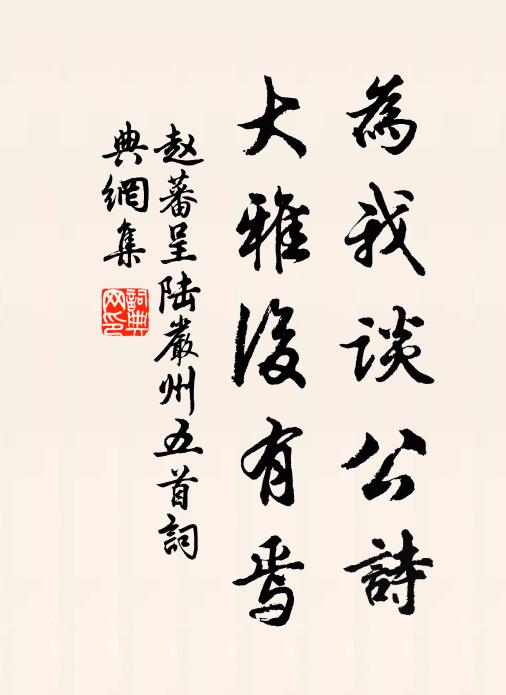 為我談公詩
大雅復有焉
赵蕃呈陆嚴州五首詞
典網集
詞典网印